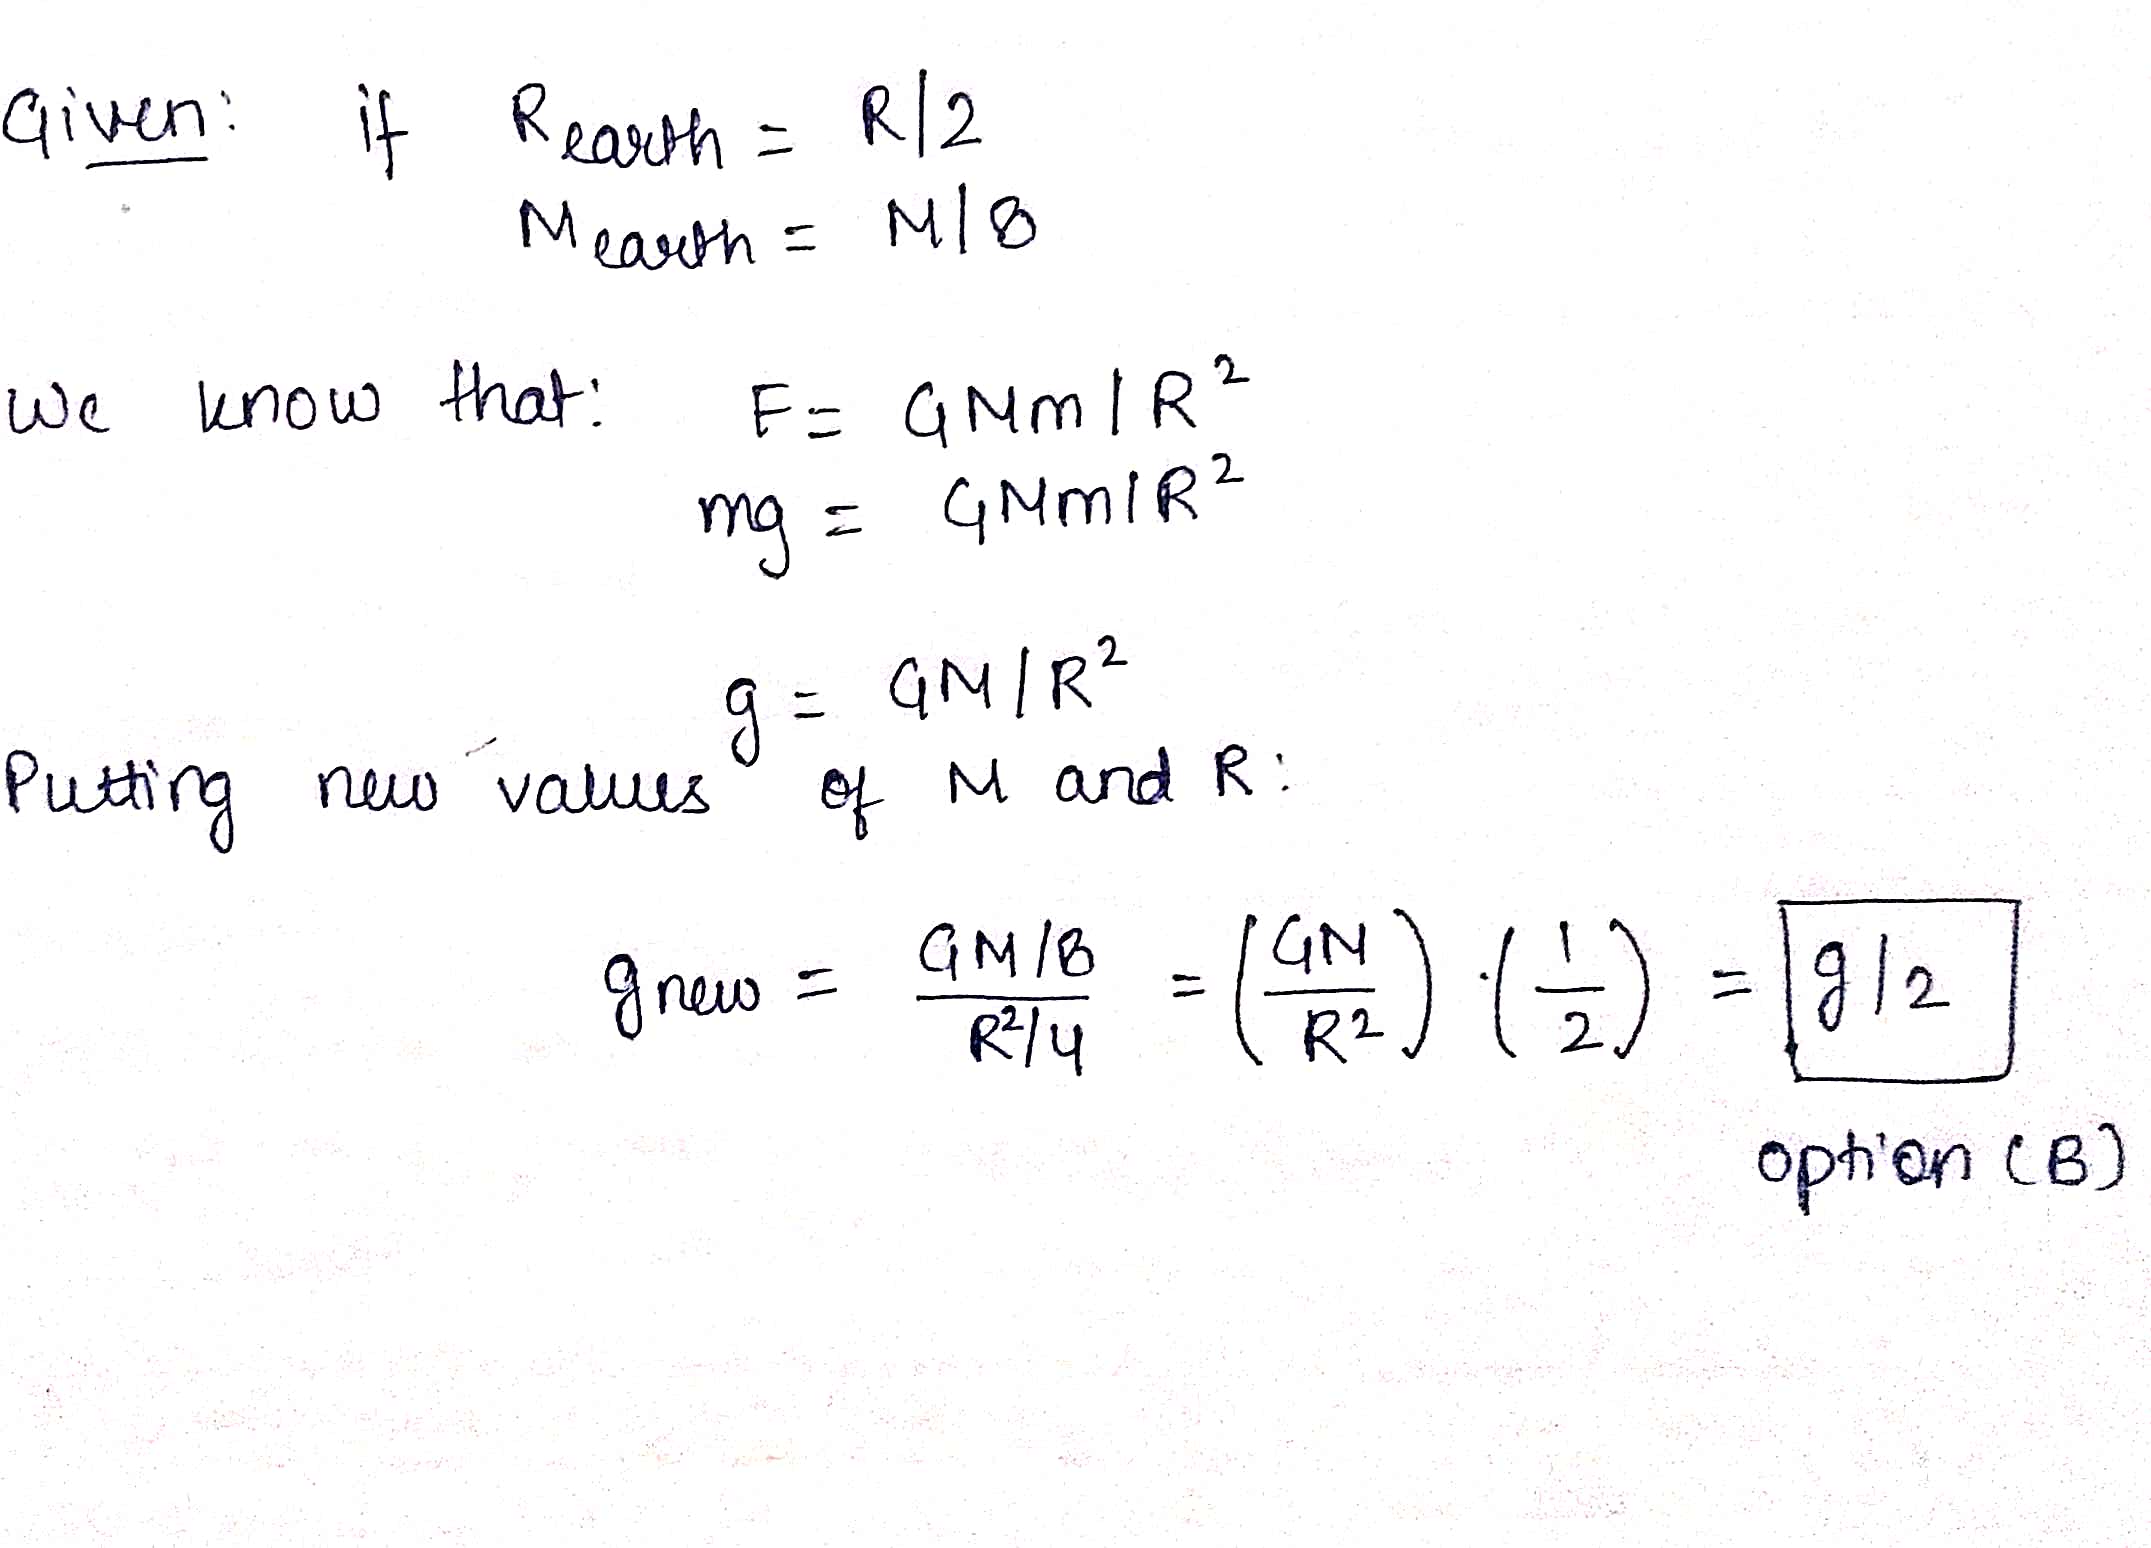 Given: if R earth = R/2
M earth = M/8
We know that: F = GMm/R²
mg = GMm/R²
g = GM/R²
Putting new values of M and R:
g new = (GM/8)/(R²/4) = (GM/R²) · (1/2) = g/2
option (B)